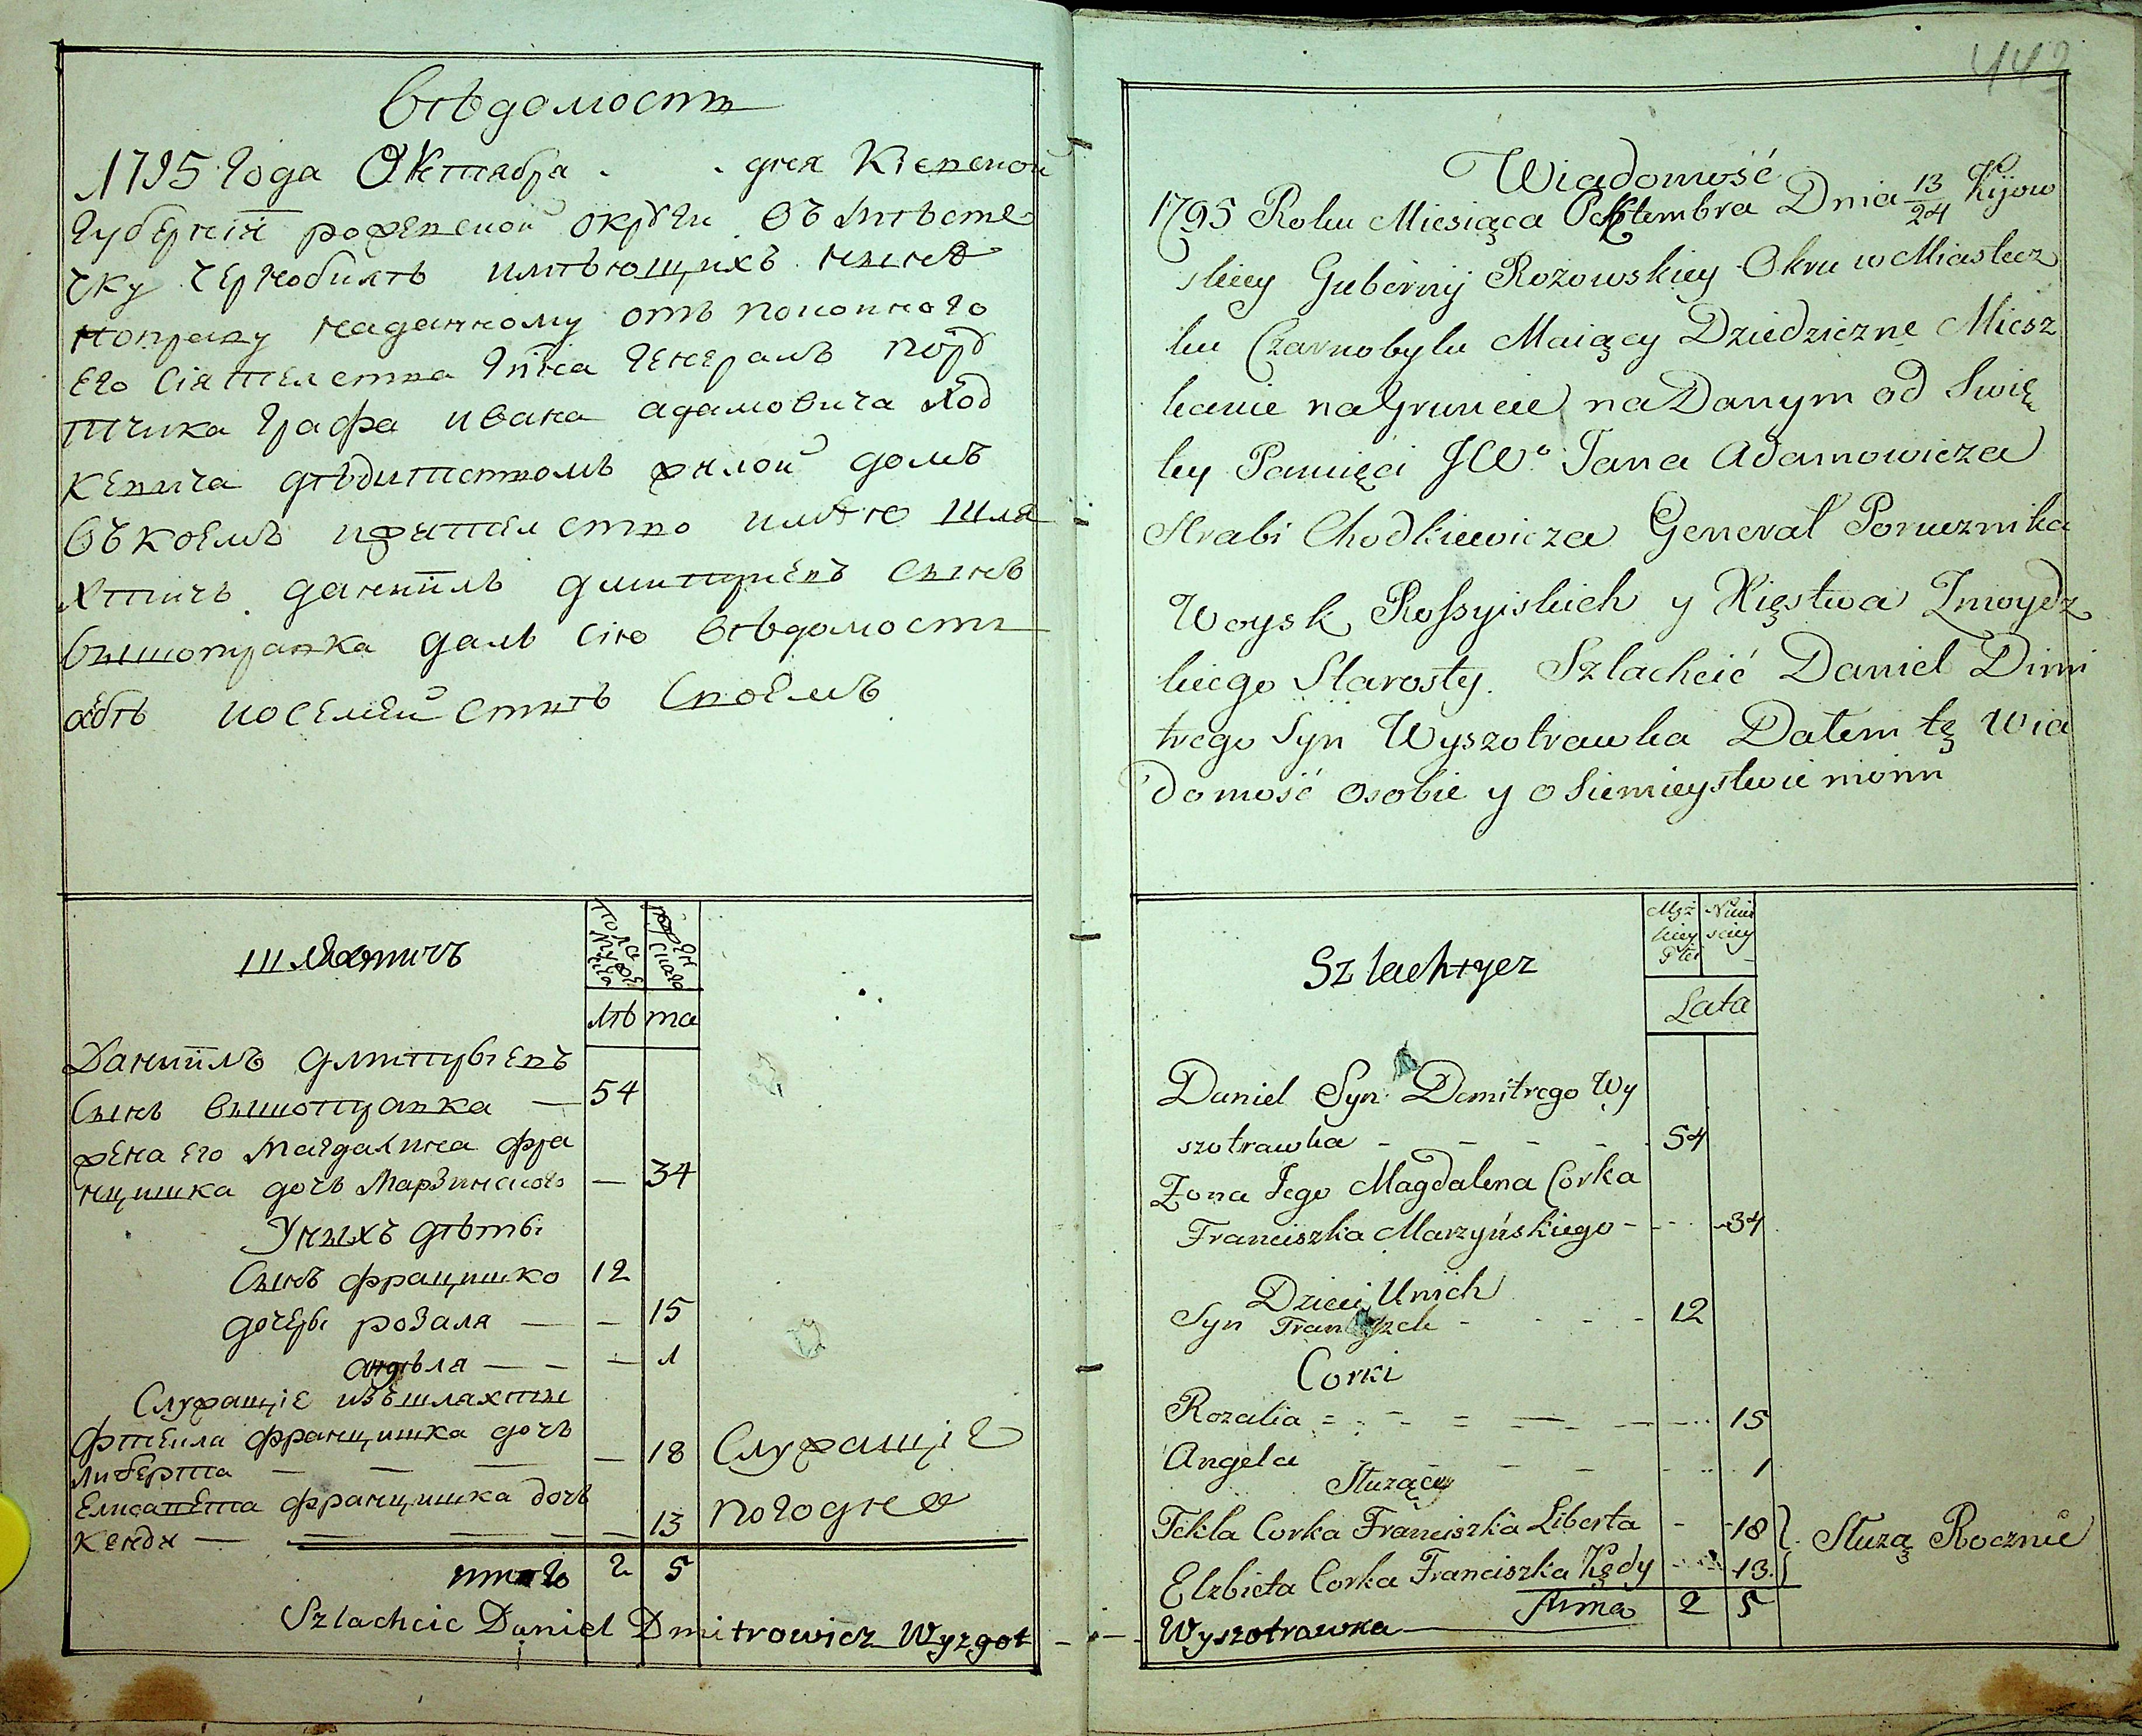 Вѣдомость
1795 Года Октября . . дня Кіевской
Губерніи рожевской округи Въ Мѣсте
чку Чернобилѣ имѣющихъ ныне
поправу наданному отъ покоиного
Его Сіятелства Гпна Генералъ пору
тчика Графа ивана адамовича Ход
кевича дѣдитствомъ жилой домъ
Въ коемъ жителство имѣю шля
хтичъ даниилъ дмитриевъ сынъ
вышотравка далъ Сію Вѣдомость
осебѣ и о семействѣ своемъ
шляхтичъ
мужеска пола
женскаго
лѣ та
Даниилъ дмитріевъ
Сынъ вышотравка — 54
жена его Магдалина фра
нцишка дочъ Марзинского — 34
Уныхъ дѣти
Сынъ францишко 12
дочеры розаля — — 15
андѣля — — — 1
Служащіе изъшляхты
Фтекла францишка дочъ
либерта — — — — 18 Служащіе
Елисавета францишка дочъ
кенды — 13 погодне
итого 2 5
Szlachcic Daniel Dmitrowicz Wyzgot — — —
442
Wiadomość
1795 Roku Miesiąca Oktembra Dnia 13/24 Kijow
skiey Gubernij Rożowskiey Okru w Miastecz
ku Czarnobylu Maiący Dziedziczne Miesz
kanie na Gruncie na Danym od Swię
tey Pamięci JW.º Jana Adamowicza
Hrabi Chodkiewicza Generał Porucznika
Woysk Rossyiskich y Xięstwa Zmoydz
kiego Starosty. Szlachcić Daniel Dimi
trego Syn Wyszotrawka Dałem tę Wia
domość osobie y o Siemieystwie moim
Szlachtycz
Męż
kiey
Płci
Niew
sciey
Lata
Daniel Syn Demitrego Wy
szotrawka - - - - - 54
Zona Jego Magdalena Corka
Franciszka Marzyńskiego - - - - 34
Dzieci Unich
Syn Franciszek - - - - 12
Corki
Rozalia - - - - - 15
Angela - - - - - 1
Służące
Tekla Corka Franciszka Liberta - - 18
Służą Rocznie
Elzbieta Corka Franciszka Kędy - - 13
Suma 2 5
Wyszotrawka